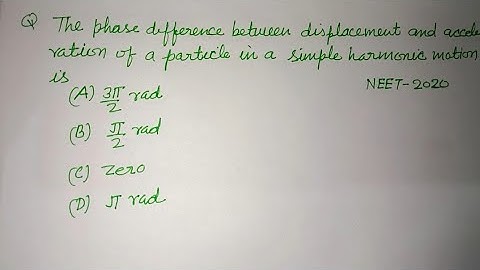 Q The phase difference between displacement and accele
ration of a particle in a simple harmonic motion
is
NEET-2020
(A) 3π/2 rad
(B) π/2 rad
(C) Zero
(D) π rad